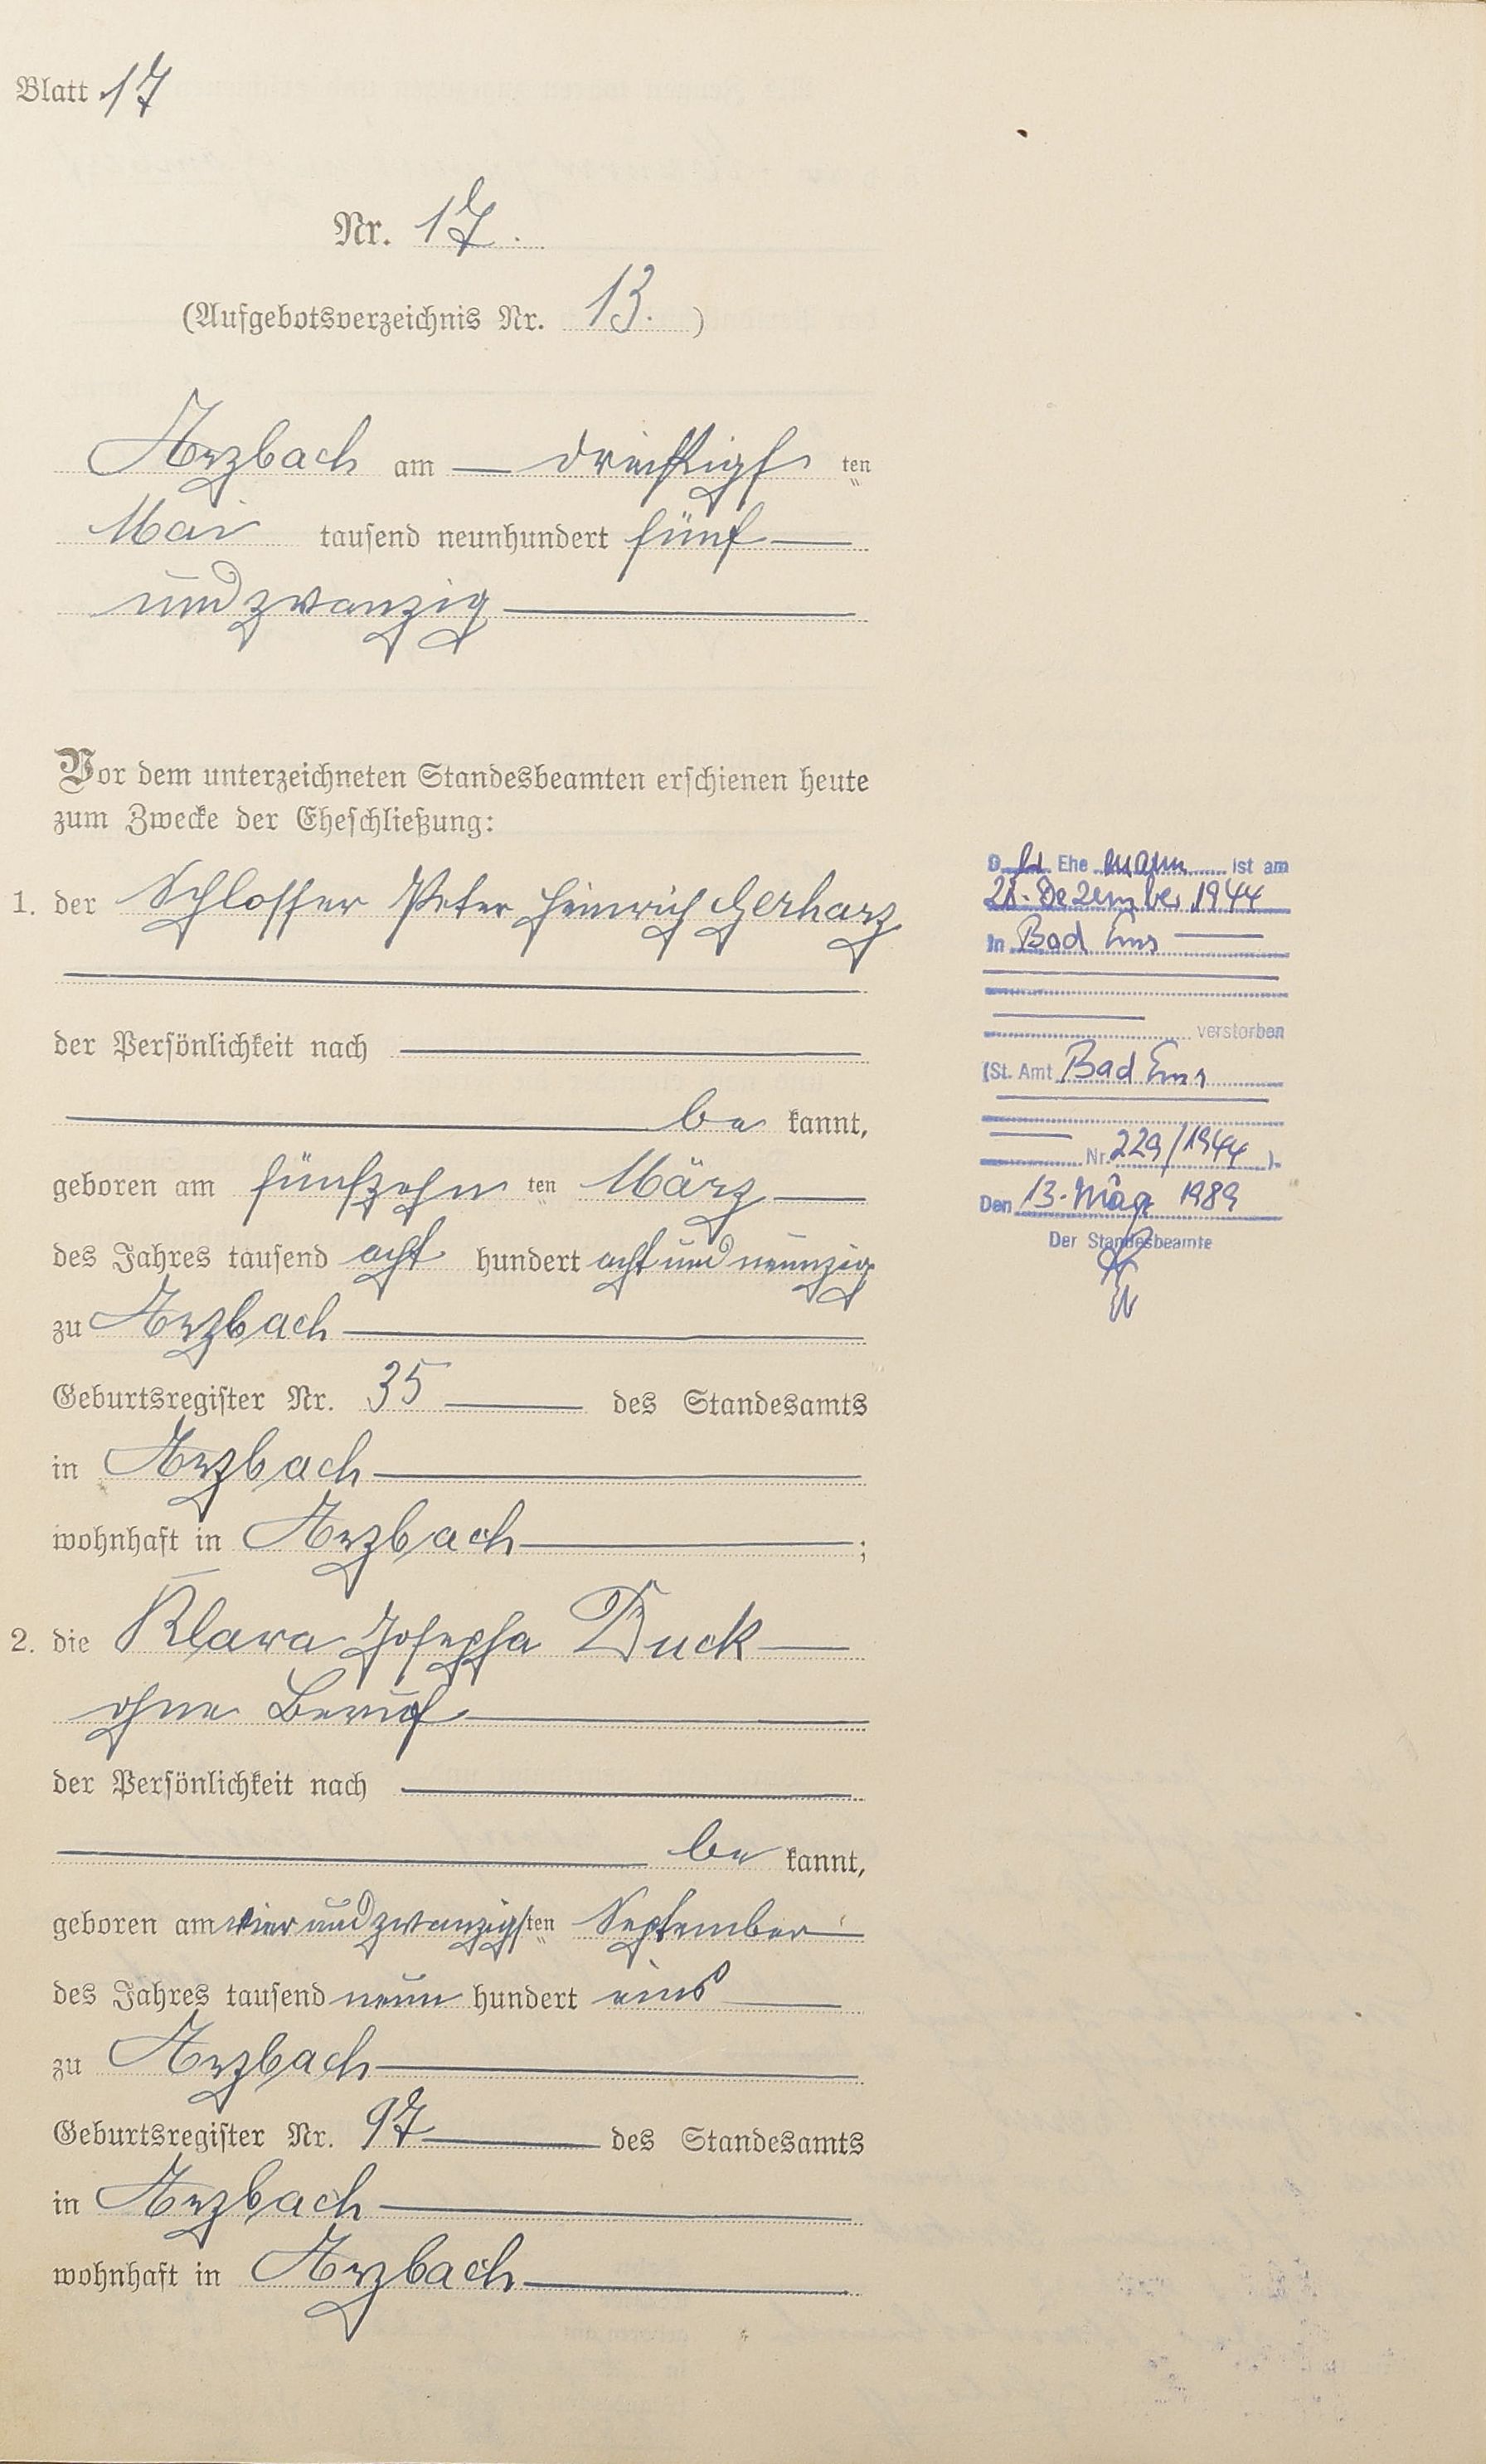 Blatt 17
Nr. 17.
(Aufgebotsverzeichnis Nr. 13. )
Arzbach am — dreißigsten
Mai tausend neunhundert fünf—
undzwanzig —
Vor dem unterzeichneten Standesbeamten erschienen heute
zum Zwecke der Eheschließung:
1. der Schlosser Peter Heinrich Gerharz
der Persönlichkeit nach —
— be kannt,
geboren am fünfzehn ten März —
des Jahres tausend acht hundert acht und neunzig
zu Arzbach —
Geburtsregister Nr. 35 — des Standesamts
in Arzbach —
wohnhaft in Arzbach — ;
2. die Klara Josepha Duck —
ohne Beruf —
der Persönlichkeit nach —
— be kannt,
geboren am vier und zwanzigsten September —
des Jahres tausend neun hundert eins —
zu Arzbach —
Geburtsregister Nr. 97 — des Standesamts
in Arzbach —
wohnhaft in Arzbach —
D er Ehe mann ist am
21. Dezember 1944
in Bad Ems —
verstorben
(St. Amt Bad Ems
Nr. 229/1944 ).
Den 13. März 1989
Der Standesbeamte